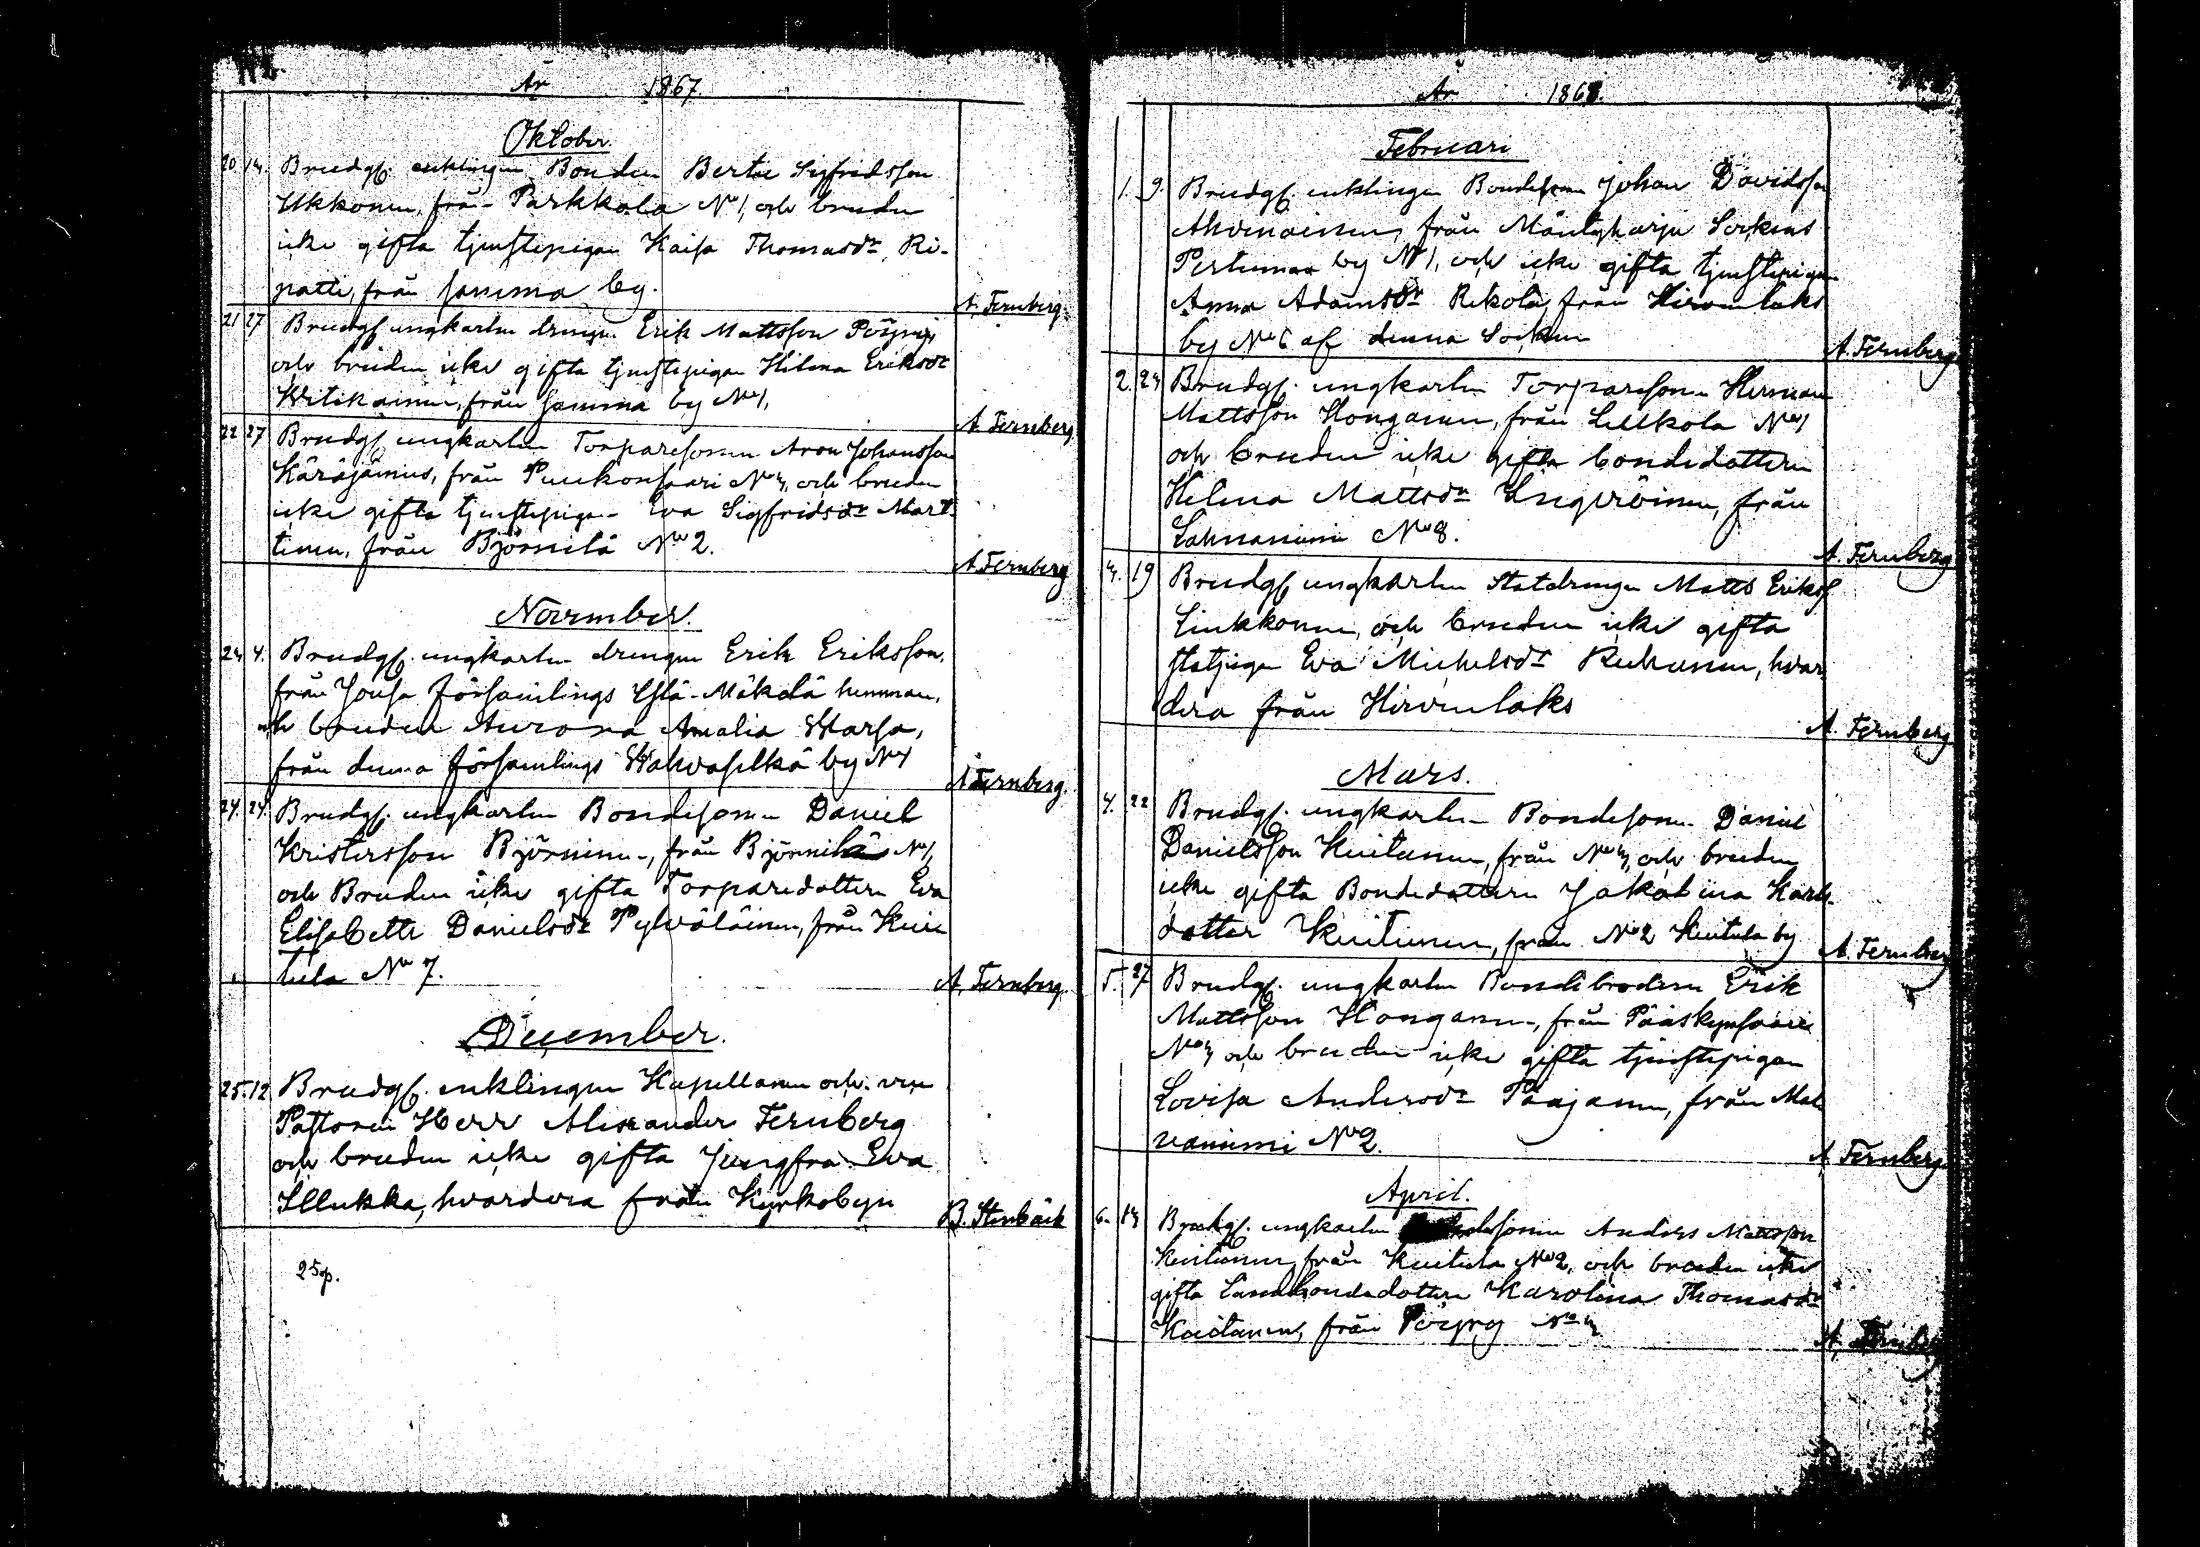 År 1867.
Oktober.
20 14. Brudg. enklingen Bonden Bertil Sigfridsson
Ukkonen, från Parkkola No 1, och bruden
icke gifta tjenstepigan Kaisa Thomasdr Ri-
patti, från samma by.
A. Fernberg.
21 27 Brudg. ungkarlen drengen Erik Mattsson Pöyry,
och bruden icke gifta tjenstepigan Helena Eriksdr
från samma by No 1,
A. Fernberg
22 27 Brudg. ungkarlen Torparesonen Aron Johansson
Käräjämies, från Puukonsaari No 4, och bruden
icke gifta tjenstepigan Eva Sigfridsdr Mart-
tinen, från Björnilä No 2.
A. Fernberg
November.
4. Brudg. ungkarlen drengen Erik Eriksson,
från Jousa församlings Ylä-Mäkelä hemman,
och bruden Aurora Amalia Harsa,
från denna församlings by No 1
A. Fernberg.
24. 24. Brudg. ungkarlen Bondesonen Daniel
Kristersson Björninen, från Björnilä No 1,
och Bruden icke gifta Torparedottern Eva
Elisabeth Danielsdr Pylväläinen, från Kui-
tula No 7.
A. Fernberg.
December.
25. 12 Brudg. enklingen Kapellanen och vice
Pastoren Herr Alexander Fernberg
och bruden icke gifta Jungfru Eva
Illukka, hvardera från Kyrkobyn
B. Stenbäck
25 p.
År 1868.
Februari
1. 9. Brudg. enklingen Bondesonen Johan Davidsson
Ahvenainen, från Mäntyharju Sockens
Pertumaa by No 1, och icke gifta tjenstepigan
Anna Adamsdr Rekola, från Hirvenlaks
by No 6 af denna Socken
A. Fernberg
2. 24 Brudg. ungkarlen Torparesonen Herman
Mattsson Honganen, från Lellkola No 1
och bruden icke gifta bondedottern
Helena Mattsdr Inqeröinen, från
Lahnaniemi No 8.
A. Fernberg
19 Brudg. ungkarlen Statdrengen Matts Eriksson
Liukkonen, och bruden icke gifta
statpigan Eva Michelsdr Reihunen, hvar-
dera från Hirvenlaks
A. Fernberg
Mars.
4. 22 Brudg. ungkarlen Bondesonen Daniel
Danielsson Kuitunen, från No 4, och bruden
icke gifta Bondedottern Jakobina Karls-
dotter Kuitunen, från No 2 Kuitula by
A. Fernberg
5. 27 Brudg. ungkarlen Bondebrodern Erik
Mattsson Honganen, från Pääskynsaari
No 4 och bruden icke gifta tjenstepigan
Lovisa Andersdr Paajanen, från
No 2.
A. Fernberg
April.
6. 14 Brudg. ungkarlen Anders Mattsson
Kuitunen, från Kuitula No 2, och bruden icke
gifta Landbondedottern Karolina Thomasdr
Kuitunen, från Pöyry No 4
A. Fernberg